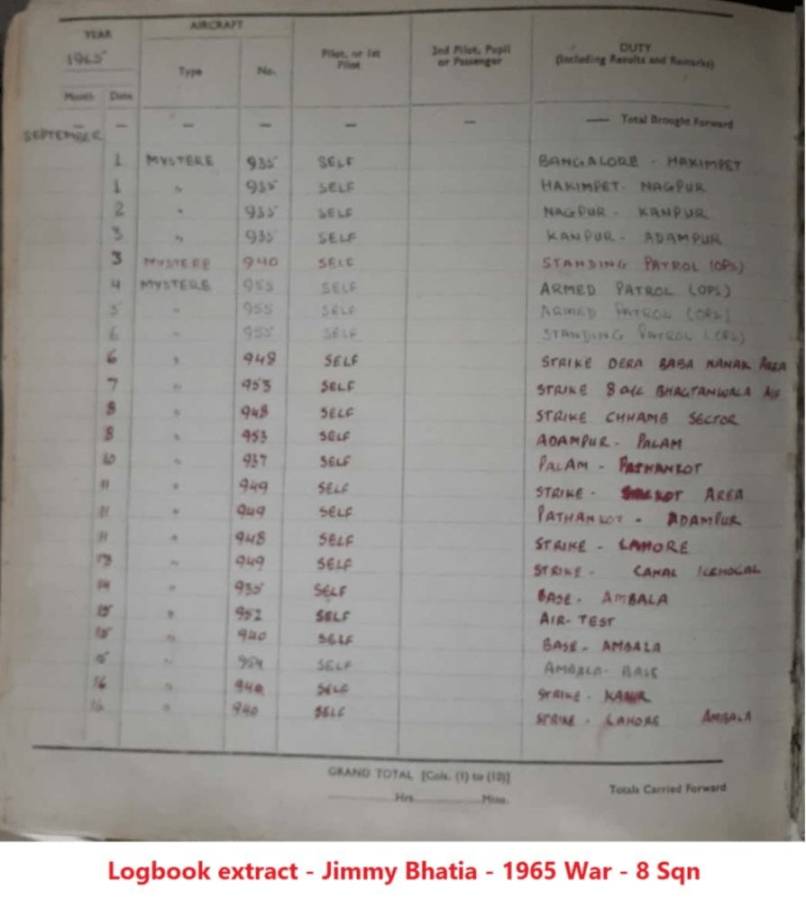 YEAR AIRCRAFT Pilot, or 1st Pilot 2nd Pilot, Pupil or Passenger DUTY (Including Results and Remarks)
1965 Type No.
Month Date
— — — — — —— Total Brought Forward
SEPTEMBER
1 MYSTERE 935 SELF BANGALORE - HAKIMPET
1 " 935 SELF HAKIMPET - NAGPUR
2 " 935 SELF NAGPUR - KANPUR
3 " 935 SELF KANPUR - ADAMPUR
3 MYSTERE 940 SELF STANDING PATROL (OPS)
4 MYSTERE 955 SELF ARMED PATROL (OPS)
5 " 955 SELF ARMED PATROL (OPS)
6 " 955 SELF STANDING PATROL (OPS)
6 " 948 SELF STRIKE DERA BABA NANAK AREA
7 " 953 SELF STRIKE 8 a/c BHAGTANWALA
8 " 948 SELF STRIKE CHHAMB SECTOR
8 " 953 SELF ADAMPUR - PALAM
10 " 937 SELF PALAM - PATHANKOT
11 " 949 SELF STRIKE - AREA
11 " 949 SELF PATHANKOT - ADAMPUR
11 " 948 SELF STRIKE - LAHORE
13 " 949 SELF STRIKE - CANAL ICHHOGAL
14 " 935 SELF BASE - AMBALA
15 " 952 SELF AIR-TEST
15 " 940 SELF BASE - AMBALA
15 " SELF AMBALA - BASE
16 " 940 SELF STRIKE -
16 " 940 SELF STRIKE - LAHORE AMBALA
GRAND TOTAL [Cols. (1) to (10)]
Hrs. Mins. Totals Carried Forward
Logbook extract - Jimmy Bhatia - 1965 War - 8 Sqn